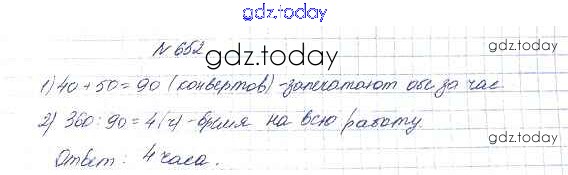 gdz.today
N 652
gdz.today
1) 40 + 50 = 90 (конвертов) - запечатают обе за час.
gdz.today
2) 360 : 90 = 4 (ч) - время на всю работу.
Ответ: 4 часа.
gdz.today